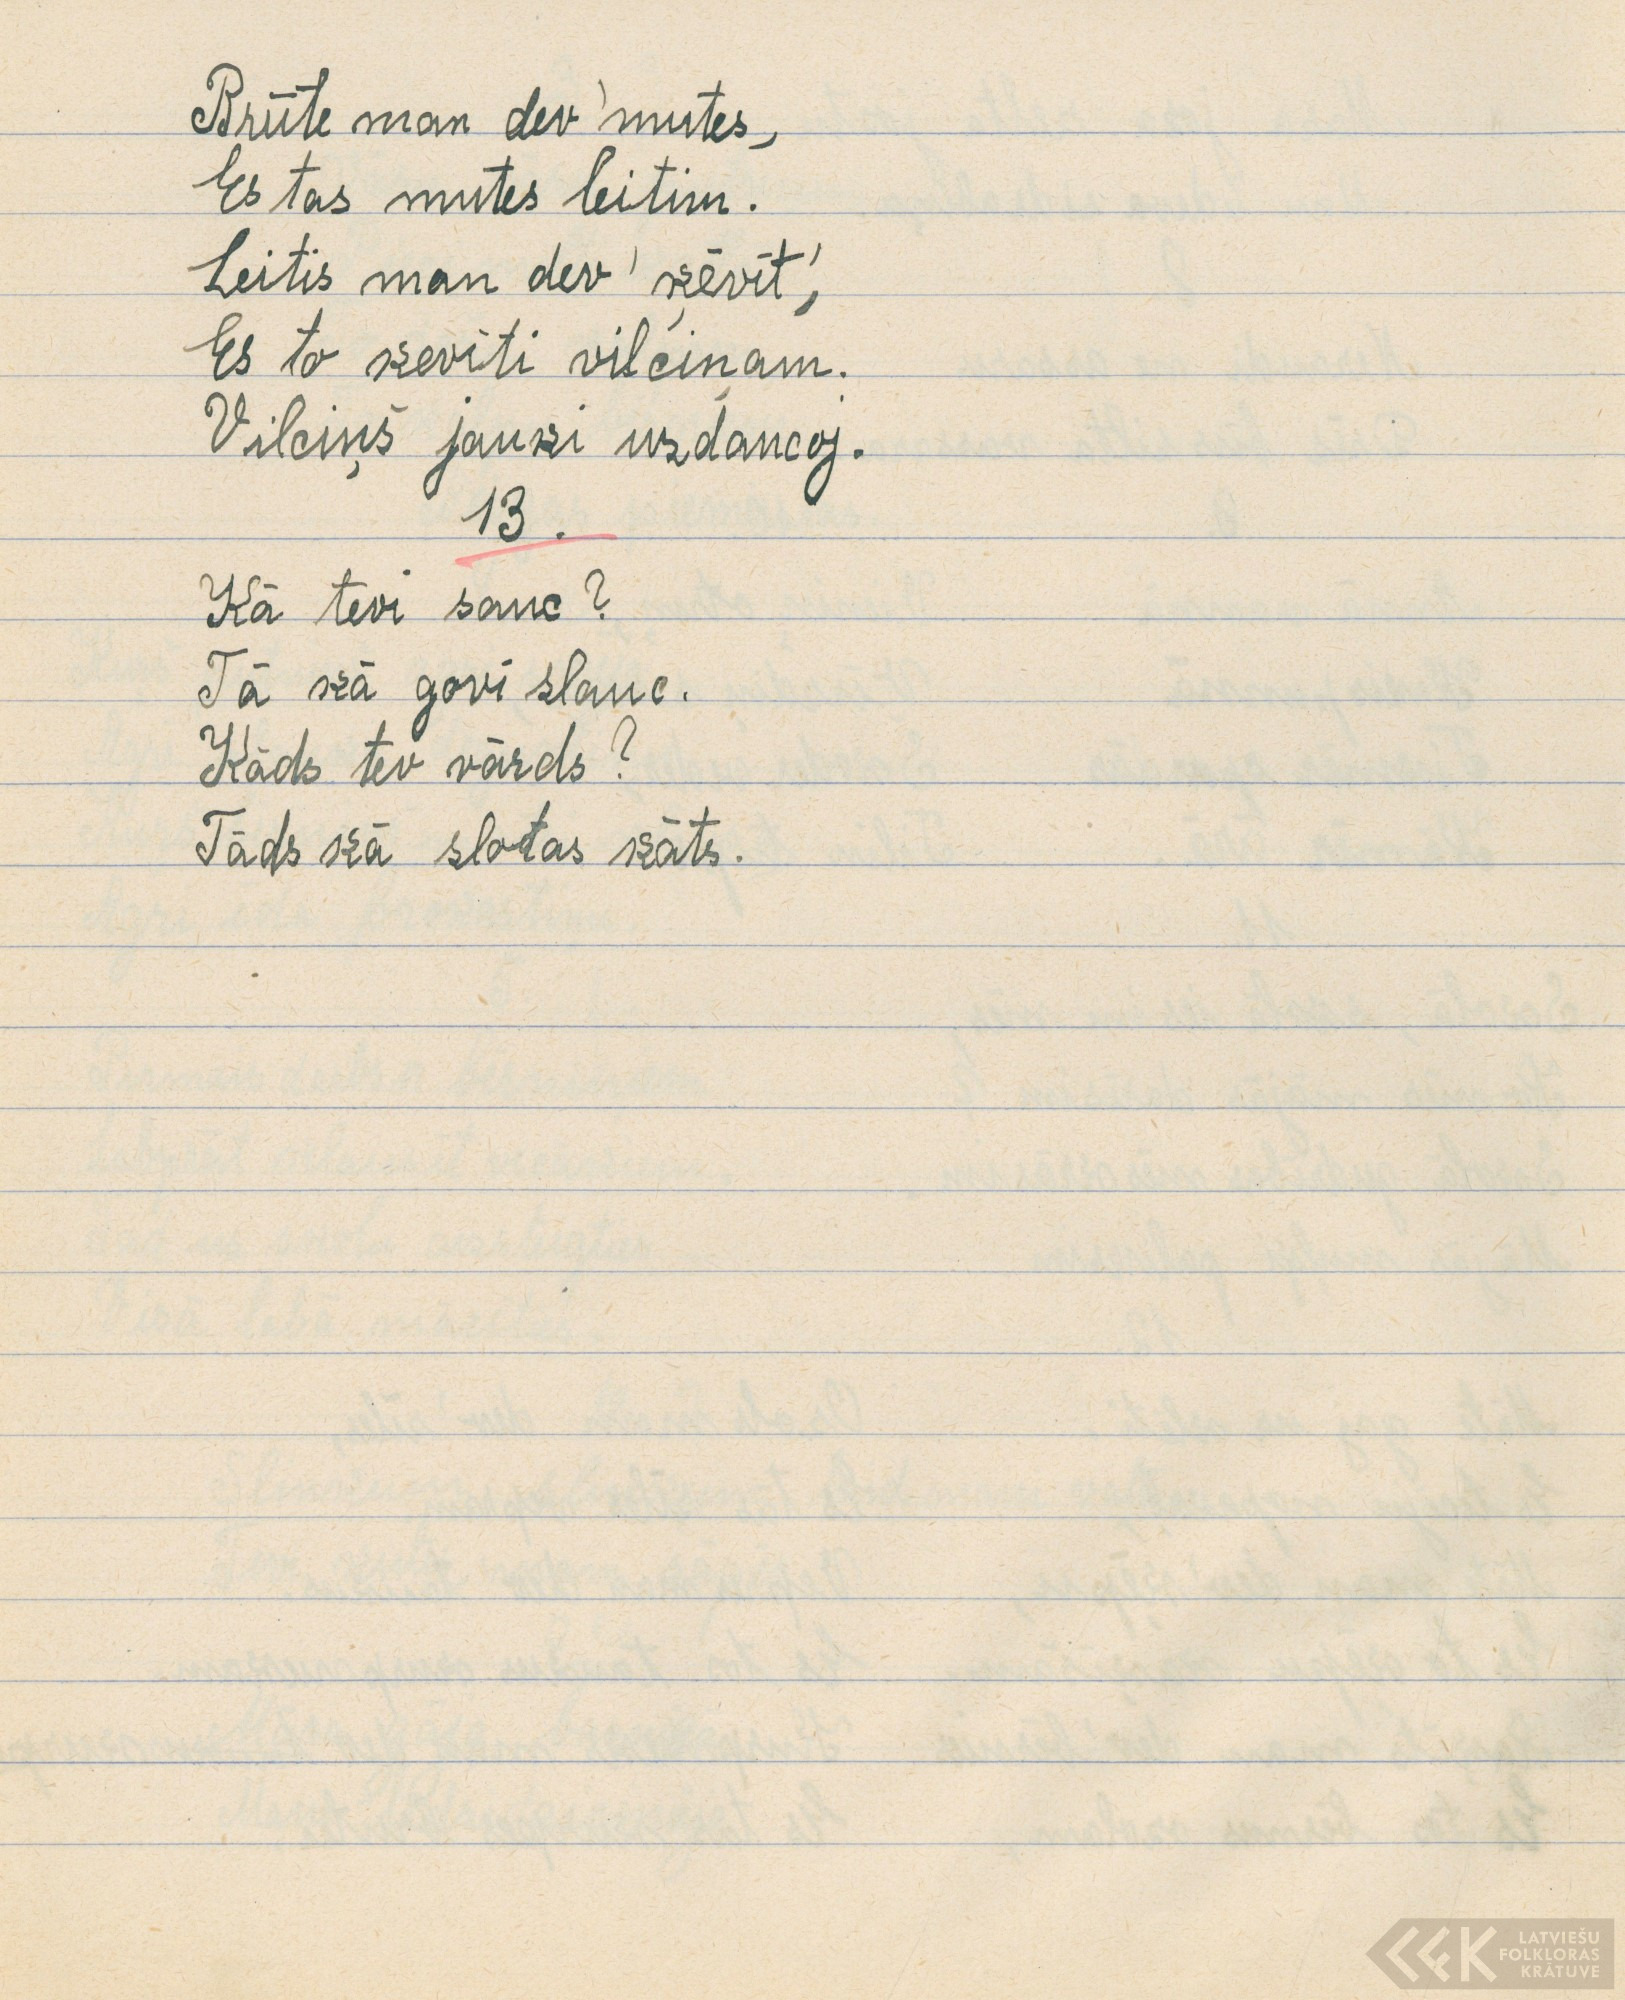 Brūte man dev' mutes,
Es tas mutes leitim.
Leitis man dev' ķēvīt',
Es to ķevīti vilciņam.
Vilciņš jauki uzdancoj.
13.
Kā tevi sauc?
Tā kā govi slauc.
Kāds tev vārds?
Tāds kā slotas kāts.
LATVIEŠU
FOLKLORAS
KRĀTUVE